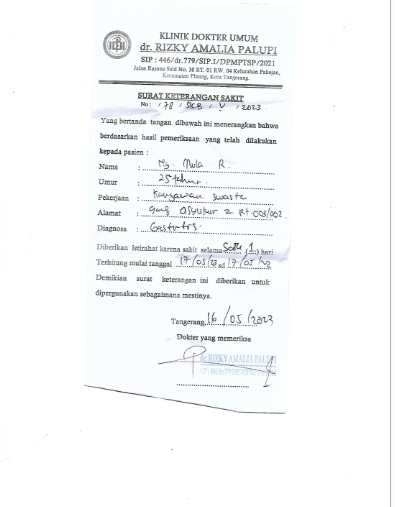 KLINIK DOKTER UMUM
dr. RIZKY AMALIA PALUPI
SIP : 446/dr.779/SIP.I/DPMPTSP/2021
Jalan Rasuna Said No. 30 RT. 01 RW. 04 Kelurahan Pakojan,
Kecamatan Pinang, Kota Tangerang.
SURAT KETERANGAN SAKIT
No: 178 / SKB / V / 2023
Yang bertanda tangan dibawah ini menerangkan bahwa
berdasarkan hasil pemeriksaan yang telah dilakukan
kepada pasien :
Nama : R.
Umur : 25 tahun
Pekerjaan : Karyawan swasta
Alamat : gang 2 Rt 003/002
Diagnosa : Gastritis
Diberikan istirahat karena sakit selama Satu (1) hari
Terhitung mulai tanggal 17/05/23 sd 17/05/23
Demikian surat keterangan ini diberikan untuk
dipergunakan sebagaimana mestinya.
Tangerang, 16 / 05 / 2023
Dokter yang memeriksa
dr. RIZKY AMALIA PALUPI